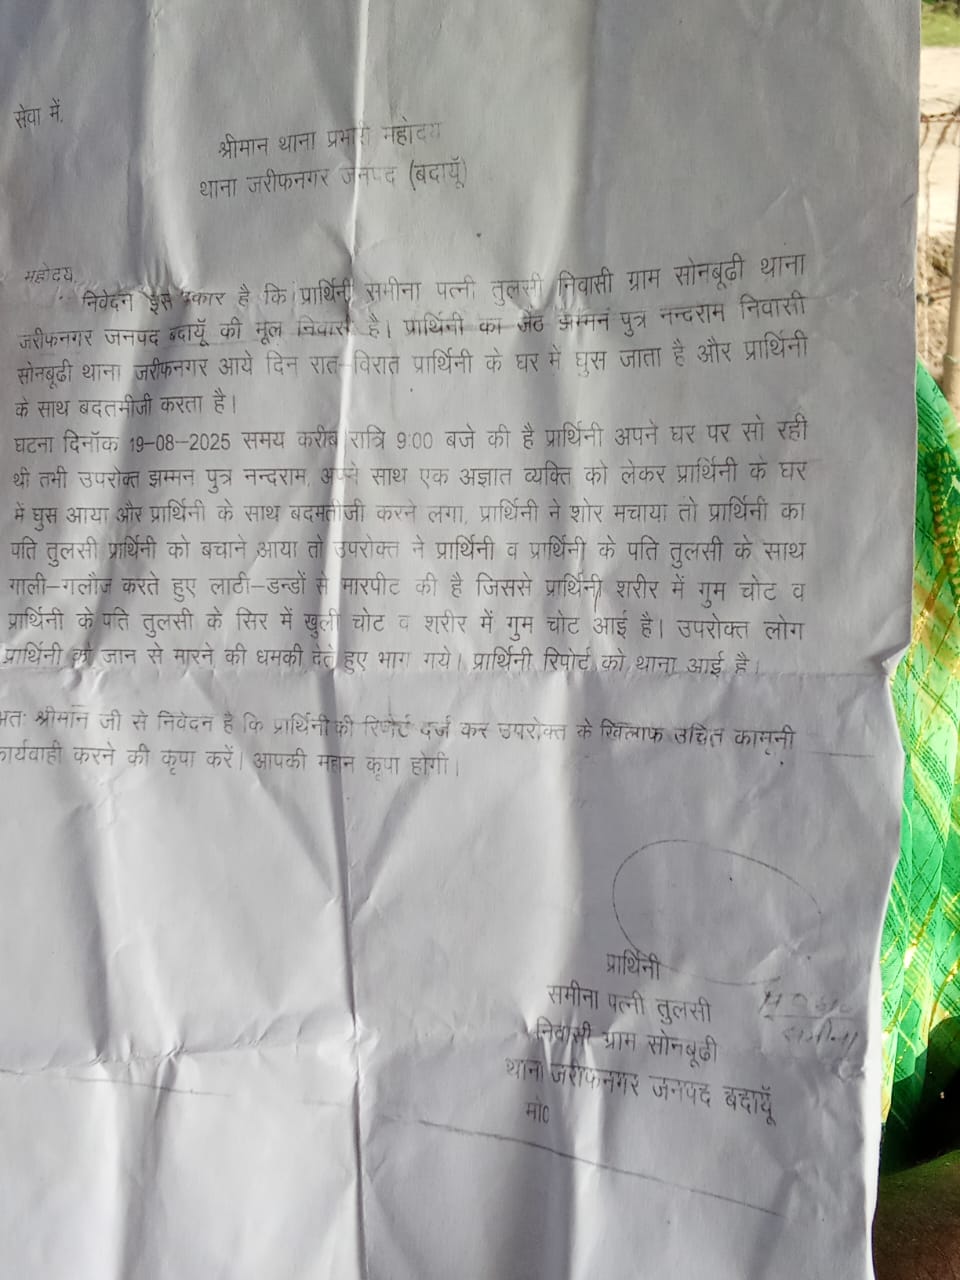 सेवा में,
श्रीमान थाना प्रभारी महोदय
थाना जरीफनगर जनपद (बदायूॅं)
महोदय,
निवेदन इस प्रकार है कि प्रार्थिनी समीना पत्नी तुलसी निवासी ग्राम सोनबूढी थाना
जरीफनगर जनपद बदायूॅं की मूल निवासी है। प्रार्थिनी का जेठ झम्मन पुत्र नन्दराम निवासी
सोनबूढी थाना जरीफनगर आये दिन रात–विरात प्रार्थिनी के घर में घुस जाता है और प्रार्थिनी
के साथ बदतमीजी करता है।
घटना दिनॉक 19–08–2025 समय करीब रात्रि 9:00 बजे की है प्रार्थिनी अपने घर पर सो रही
थी तभी उपरोक्त झम्मन पुत्र नन्दराम, अपने साथ एक अज्ञात व्यक्ति को लेकर प्रार्थिनी के घर
में घुस आया और प्रार्थिनी के साथ बदमतीजी करने लगा, प्रार्थिनी ने शोर मचाया तो प्रार्थिनी का
पति तुलसी प्रार्थिनी को बचाने आया तो उपरोक्त ने प्रार्थिनी व प्रार्थिनी के पति तुलसी के साथ
गाली–गलौज करते हुए लाठी–डन्डों से मारपीट की है जिससे प्रार्थिनी शरीर में गुम चोट व
प्रार्थिनी के पति तुलसी के सिर में खुली चोट व शरीर में गुम चोट आई है। उपरोक्त लोग
प्रार्थिनी को जान से मारने की धमकी देते हुए भाग गये। प्रार्थिनी रिपोर्ट को थाना आई है।
अतः श्रीमान जी से निवेदन है कि प्रार्थिनी की रिपोर्ट दर्ज कर उपरोक्त के खिलाफ उचित कानूनी
कार्यवाही करने की कृपा करें। आपकी महान कृपा होगी।
प्रार्थिनी
समीना पत्नी तुलसी
निवासी ग्राम सोनबूढी
थाना जरीफनगर जनपद बदायूॅं
मो0
समीना